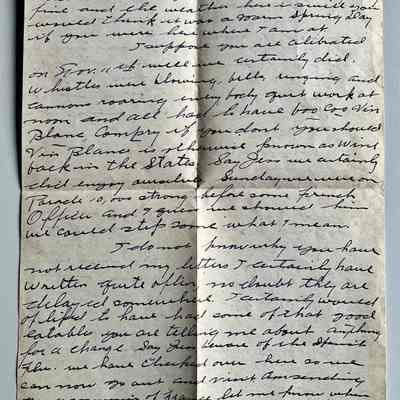 fine and the weather here is swell you
would think it was a warm Spring Day
if you were here where I am at
I suppose you are celibrated
on Nov. 11 well we certainly did.
Whistles were blowing, bells ringing and
cannon roaring every body quit work at
noon and all had to have too Coo Vin
Blanc Compry if you dont you should
Vin Blanc is otherwise known as Wine
back in the States. Say Jess we certainly
did enjoy ourselves Sunday we were on
Parade 10,000 strong before some French
Officer and I guess we showed him
we could step some what I mean.
I do not know why you have
not received my letters I certainly have
written quite often no doubt they are
delayed somewhere I certainly would
of liked to have had some of that good
eatables you are telling me about anything
for a change. Say Jess beware of the Spanish
Flu. we have checked over here so we
can now go out and visit Am sending
of France let me know when